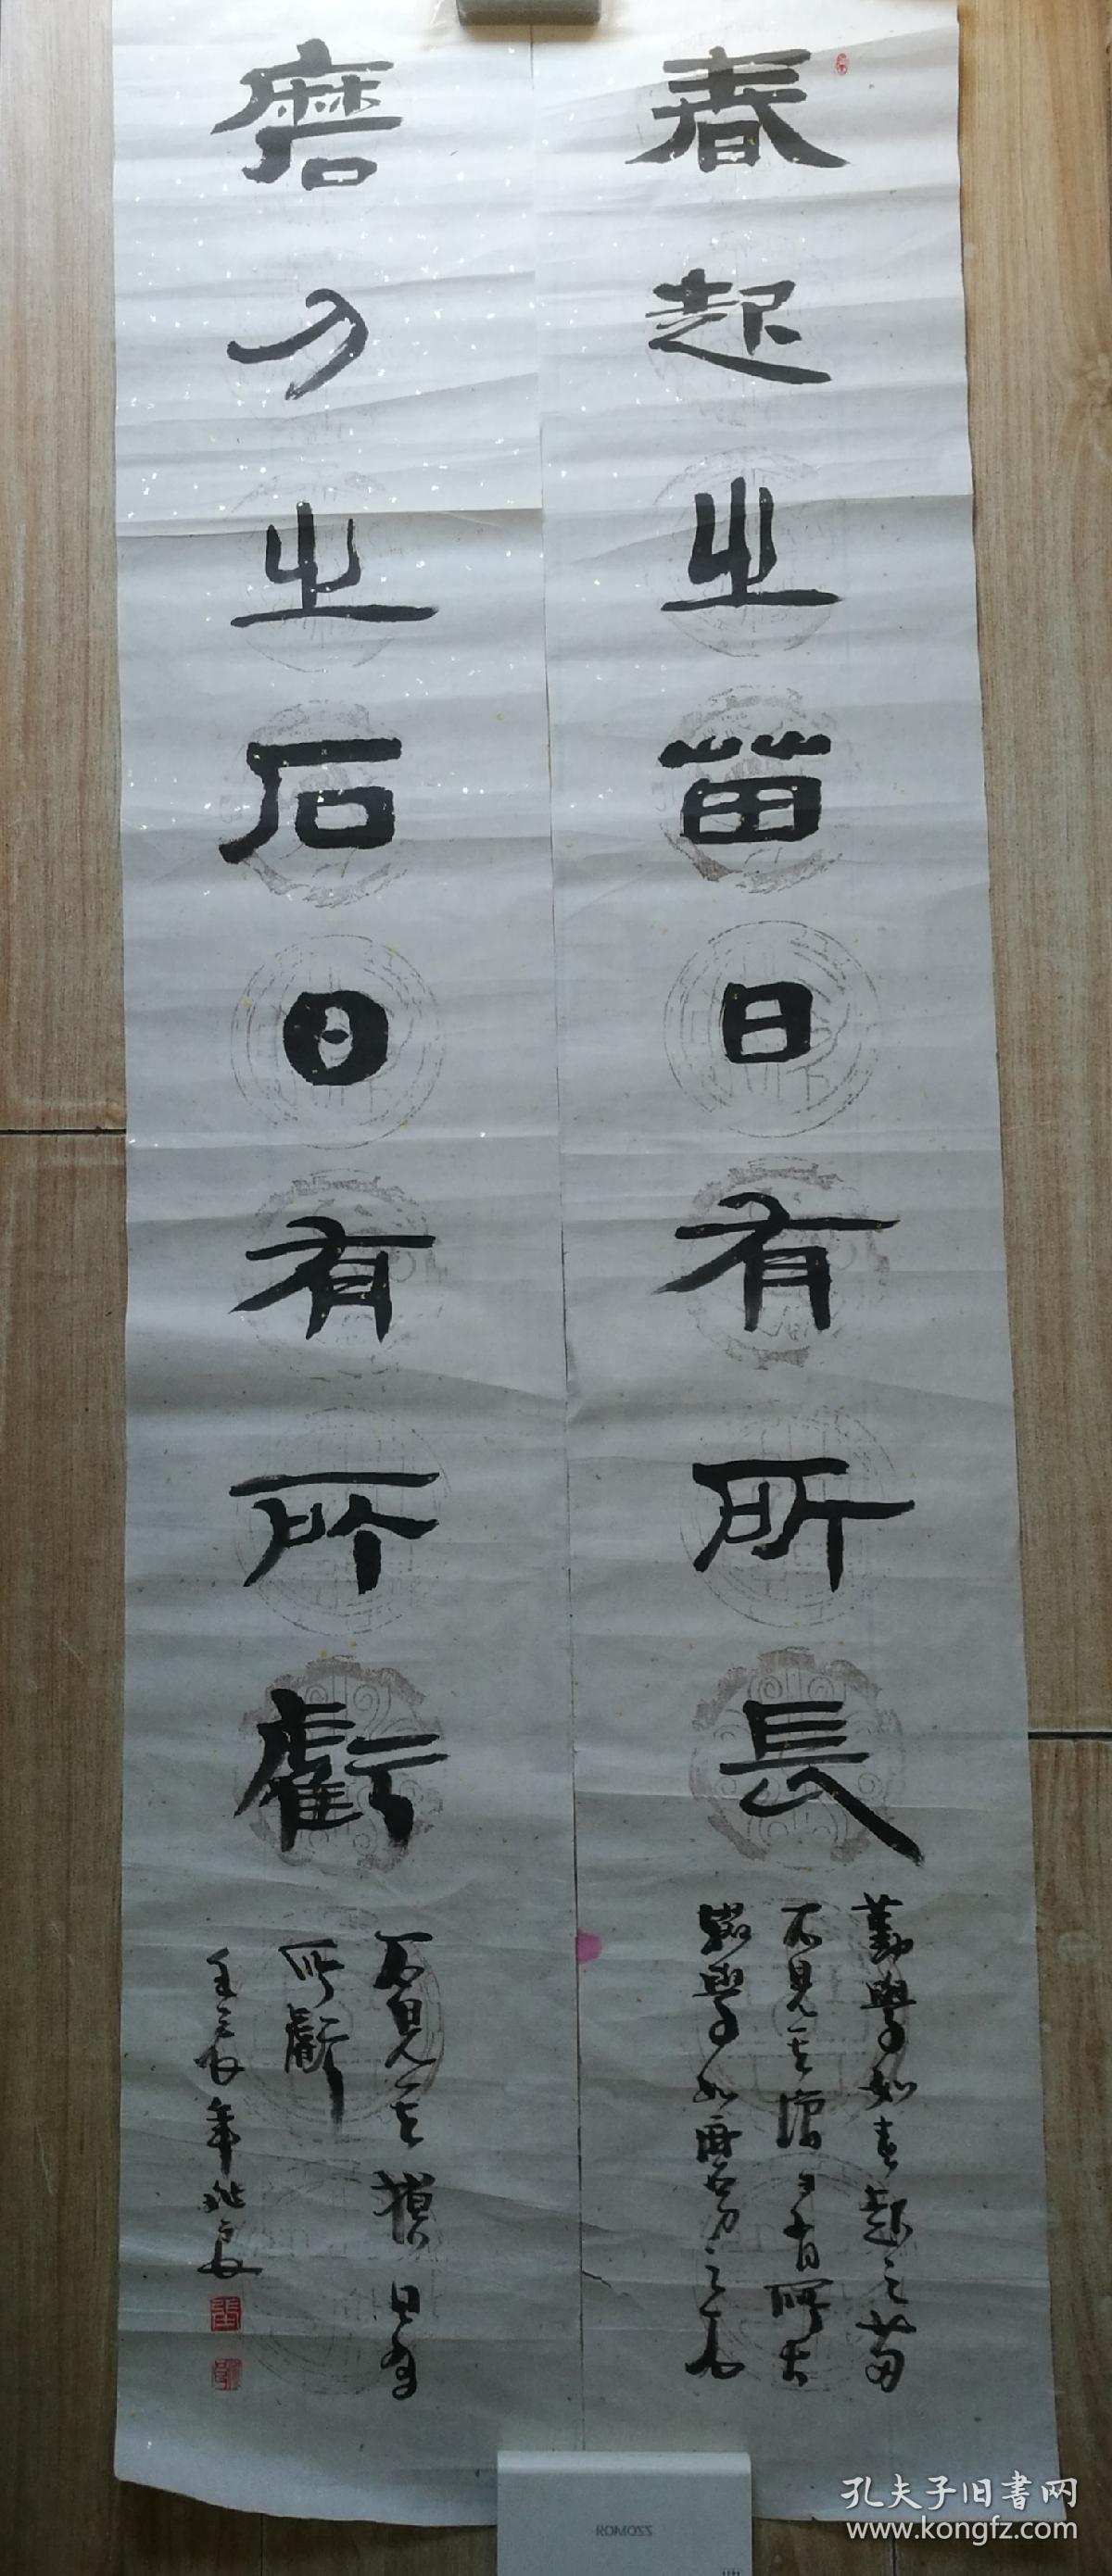 春起之苗日有所長
勤學如春起之苗
不見其增日有所長
輟學如磨刀之石
磨刀之石日有所虧
不見其損日有
所虧
壬辰年
ROMOSS
孔夫子旧书网
www.kongfz.com